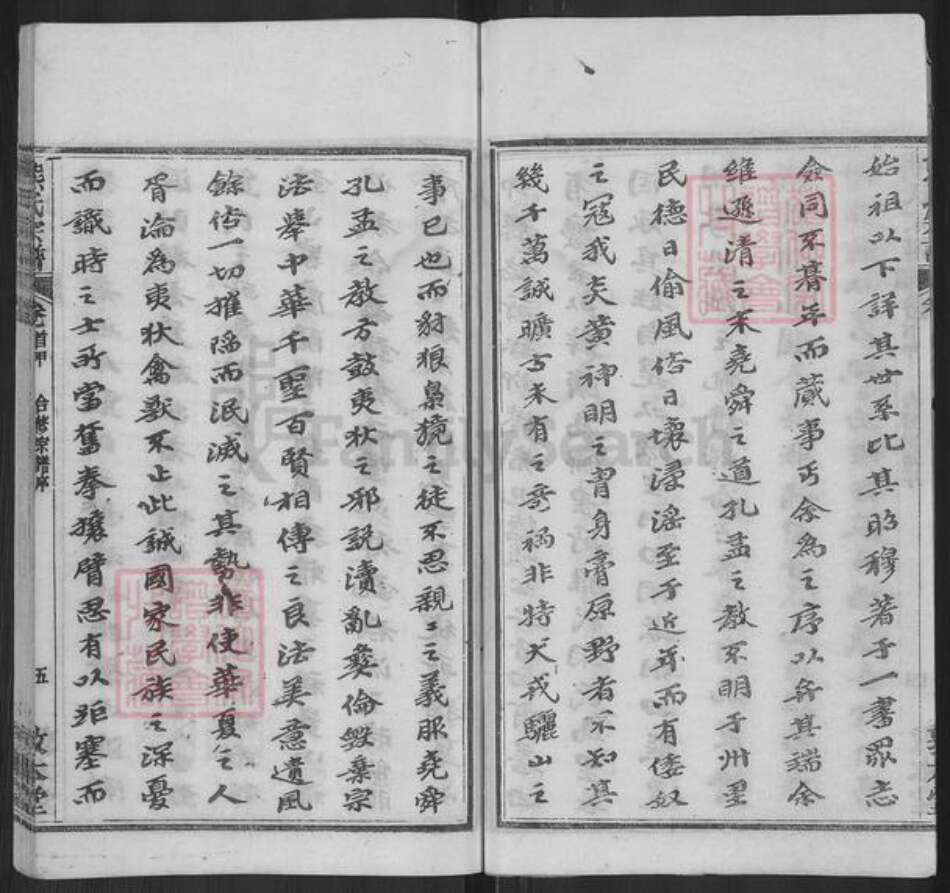 始祖以下詳其世系比其昭穆著于一書眾志
僉同不朞年而蕆事丐余為之序以弁其端余
維遜清之末堯舜之道孔孟之教不明于州里
民德日偷風俗日壞浸淫至于近年而有倭奴
之寇我炎黃神明之胄身膏原野者不知其
幾千萬誠曠古未有之奇禍非特犬戎驪山之
事已也而豺狼梟獍之徒不忍親之義服堯舜
孔孟之教方鼓夷狄之邪説瀆亂彝倫毀棄宗
法舉中華千聖百賢相傳之良法美意遺風
餘俗一切摧陷而泯滅之其勢非使華夏之人
胥淪為夷狄禽獸不止此誠國家民族之深憂
而識時之士所當奮拳攘臂思有以距塞而
氏宗譜
卷首甲
合修宗譜序
五
敦本堂
FamilySearch